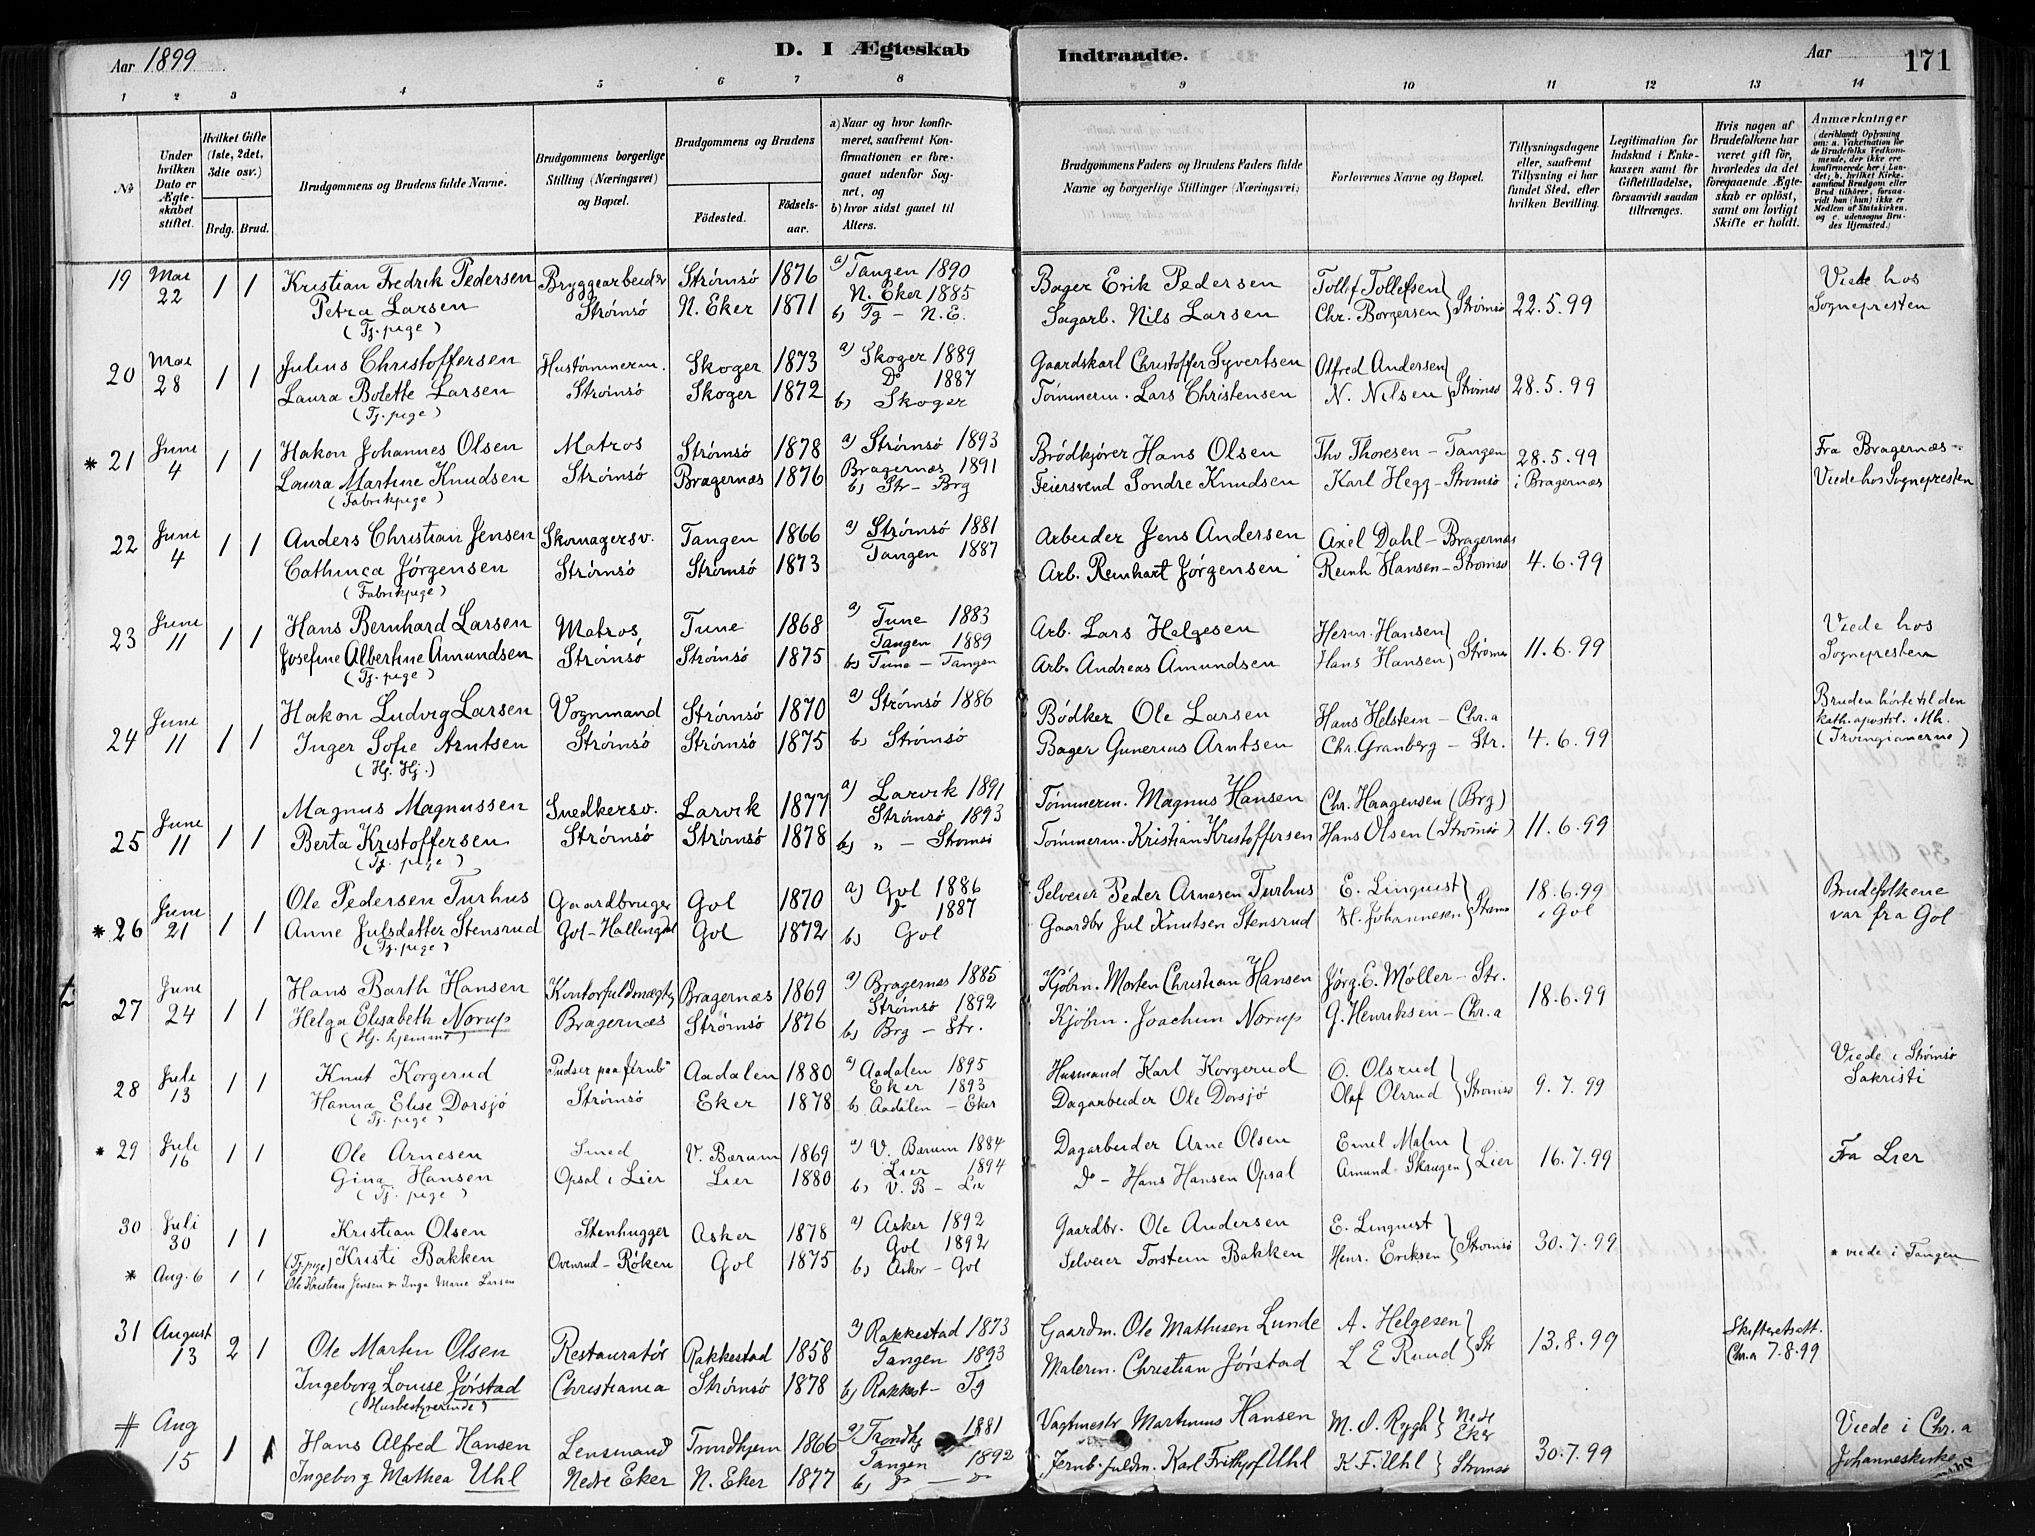 Aar 1899 D. I Ægteskab Indtraadte. Aar 171
1 2 3 4 5 6 7 8 9 10 11 12 13 14
No.
Under hvilken Dato er Ægteskabet stiftet.
Hvilket Gifte (1ste, 2det, 3die osv.)
Brdg. Brud.
Brudgommens og Brudens fulde Navne.
Brudgommens borgerlige Stilling (Næringsvei) og Bopæl.
Brudgommens og Brudens
Födested. Födselsaar.
a) Naar og hvor konfirmeret, saafremt Konfirmationen er foregaaet udenfor Sognet, og
b) hvor sidst gaaet til Alters.
Brudgommens Faders og Brudens Faders fulde Navne og borgerlige Stillinger (Næringsvei)
Forlovernes Navne og Bopæl.
Tillysningsdagene eller, saafremt Tillysning ei har fundet Sted, efter hvilken Bevilling.
Legitimation for Indskud i Enkekassen samt for Giftetilladelse, forsaavidt saadan tiltrænges.
Hvis nogen af Brudefolkene har været gift för, hvorledes da det foregaaende Ægteskab er oplöst, samt om lovligt Skifte er holdt.
Anmærkninger (deriblandt Oplysning om: a. Vakcination for de Brudefolks Vedkommende, der ikke ere konfirmerede her i Landet; b. hvilket Kirkesamfund Brudgom eller Brud tilhörer, forsaavidt han (hun) ikke er Medlem af Statskirken, og c. udensogns Brudes Hjemsted.)
19 Mai 22 1 1 Kristian Fredrik Pedersen Bryggearbeider Strømsö 1876 a) Tangen 1890 Bager Erik Pedersen Tollef Tollefsen Viede hos
Petra Larsen Strømsö N. Eker 1871 N. Eker 1885 Sagarb. Nils Larsen Chr. Borgersen } Strømsö 22.5.99 Sognepresten
(Tj. pige) b) Tg – N.E.
20 Mai 28 1 1 Julius Christoffersen Hustømmerm. Skoger 1873 a) Skoger 1889 Gaardskarl Christoffer Syvertsen Alfred Andersen
Laura Bolette Larsen Strømsö Skoger 1872 Do 1887 Tømmerm. Lars Christensen N. Nilsen } Strømsö 28.5.99
(Tj. pige) b) Skoger
* 21 June 4 1 1 Hakon Johannes Olsen Matros Strømsö 1878 a) Strømsö 1893 Brödkjører Hans Olsen Thv Thoresen – Tangen 28.5.99 Fra Bragernæs –
Laura Martine Knudsen Strømsö Bragernæs 1876 Bragernæs 1891 Feiersvend Sondre Knudsen Karl Hegg – Strømsö i Bragernæs Viede hos Sognepresten
(Fabrikpige) b) Str – Brg
22 June 4 1 1 Anders Christian Jensen Skomagersv. Tangen 1866 a) Strømsö 1881 Arbeider Jens Andersen Axel Dahl – Bragernæs
Cathinca Jörgensen Strømsö Strømsö 1873 Tangen 1887 Arb. Reinhart Jörgensen Reinh Hansen – Strømsö 4.6.99
(Fabrikpige)
23 June 11 1 1 Hans Bernhard Larsen Matros Tune 1868 a) Tune 1883 Arb. Lars Helgesen Herm. Hansen Viede hos
Josefine Albertine Amundsen Strømsö Strømsö 1875 Tangen 1889 Arb. Andreas Amundsen Hans Hansen } Strømsö 11.6.99 Sognepresten
(Tj. pige) b) Tune – Tangen
24 June 11 1 1 Hakon Ludvig Larsen Vognmand Strømsö 1870 a) Strømsö 1886 Bödker Ole Larsen Hans Helstein – Chr.a Bruden hörte til den kath. apostol. Mh.
Inger Sofie Arntsen Strømsö Strømsö 1875 b) Strømsö Bager Gunerius Arntsen Chr. Granberg – Str. 4.6.99 (Irvingianerne)
(Hj. Hj.)
25 June 11 1 1 Magnus Magnussen Snedkersv. Larvik 1877 a) Larvik 1891 Tømmerm. Magnus Hansen Chr. Haagensen (Brg)
Berta Kristoffersen Strømsö Strømsö 1878 Strømsö 1893 Tømmerm. Kristian Kristoffersen Hans Olsen (Strømsö) 11.6.99
(Tj. pige) b) " – Strømsö
* 26 June 21 1 1 Ole Pedersen Turhus Gaardbruger Gol 1870 a) Gol 1886 Selveier Peder Arnesen Turhus E. Linquist 18.6.99 Brudefolkene
Anne Julsdatter Stensrud Gol – Hallingdal Gol 1872 Do 1887 Gaardbr Jul Knutsen Stensrud H. Johannesen } Strømsö i Gol var fra Gol
(Tj. pige) b) Gol
27 June 24 1 1 Hans Barth Hansen Kontorfuldmægtig Bragernæs 1869 a) Bragernæs 1885 Kjöbm. Morten Christian Hansen Jørg. E. Møller – Str.
Helga Elisabeth Norup Bragernæs Strømsö 1876 Strømsö 1892 Kjöbm. Joachim Norup G. Henriksen – Chr.a 18.6.99
(Hj. hjemme) b) Brg – Str.
28 Juli 13 1 1 Knut Korgerud Pudser paa Jernb. Aadalen 1880 a) Aadalen 1895 Husmand Karl Korgerud O. Olsrud Viede i Strømsö
Hanna Elise Dorsjö Strømsö Eker 1878 Eker 1893 Dagarbeider Ole Dorsjö Olaf Olsrud } Strømsö 9.7.99 Sakristi
(Tj. pige) b) Aadalen – Eker
* 29 Juli 16 1 1 Ole Arnesen Smed V. Bærum 1869 a) V. Bærum 1884 Dagarbeider Arne Olsen Emil Malm
Gina Hansen Opsal i Lier Lier 1880 Lier 1894 Do – Hans Hansen Opsal Amund Skaugen } Lier 16.7.99 Fra Lier
(Tj. pige) b) V. B – Lier
30 Juli 30 1 1 Kristian Olsen Stenhugger Asker 1878 a) Asker 1892 Gaardbr. Ole Andersen E. Linquist
(Tj. pige) Kristi Bakken Ovenrud – Röken Gol 1875 Gol 1892 Selveier Torstein Bakken Henr. Eriksen } Strømsö 30.7.99 * viede i Tangen
* Aug. 6 1 1 Ole Kristian Jensen & Inga Marie Larsen b) Asker – Gol
31 August 13 2 1 Ole Martin Olsen Restauratör Rakkestad 1858 a) Rakkestad 1873 Gaardm. Ole Mathisen Lunde A. Helgesen Skifteretsatt.
Ingeborg Louise Jörstad Christiania Strømsö 1878 Tangen 1893 Malerm. Christian Jörstad L E Ruud } Str 13.8.99 Chr.a 7.8.99
(Husbestyrerinde) b) Rakkest – Tg
# Aug 15 1 1 Hans Alfred Hansen Lensmand Trondhjem 1866 a) Trondhj 1881 Vagtmestr Martinius Hansen M. O. Rygh } Nedre Eker Viede i Chr.a
Ingeborg Mathea Uhl Nedre Eker N. Eker 1877 Tangen 1892 Jernb. fuldm. Karl Frithjof Uhl K F. Uhl } Strømsö 30.7.99 Johanneskirke
b) Do – Do